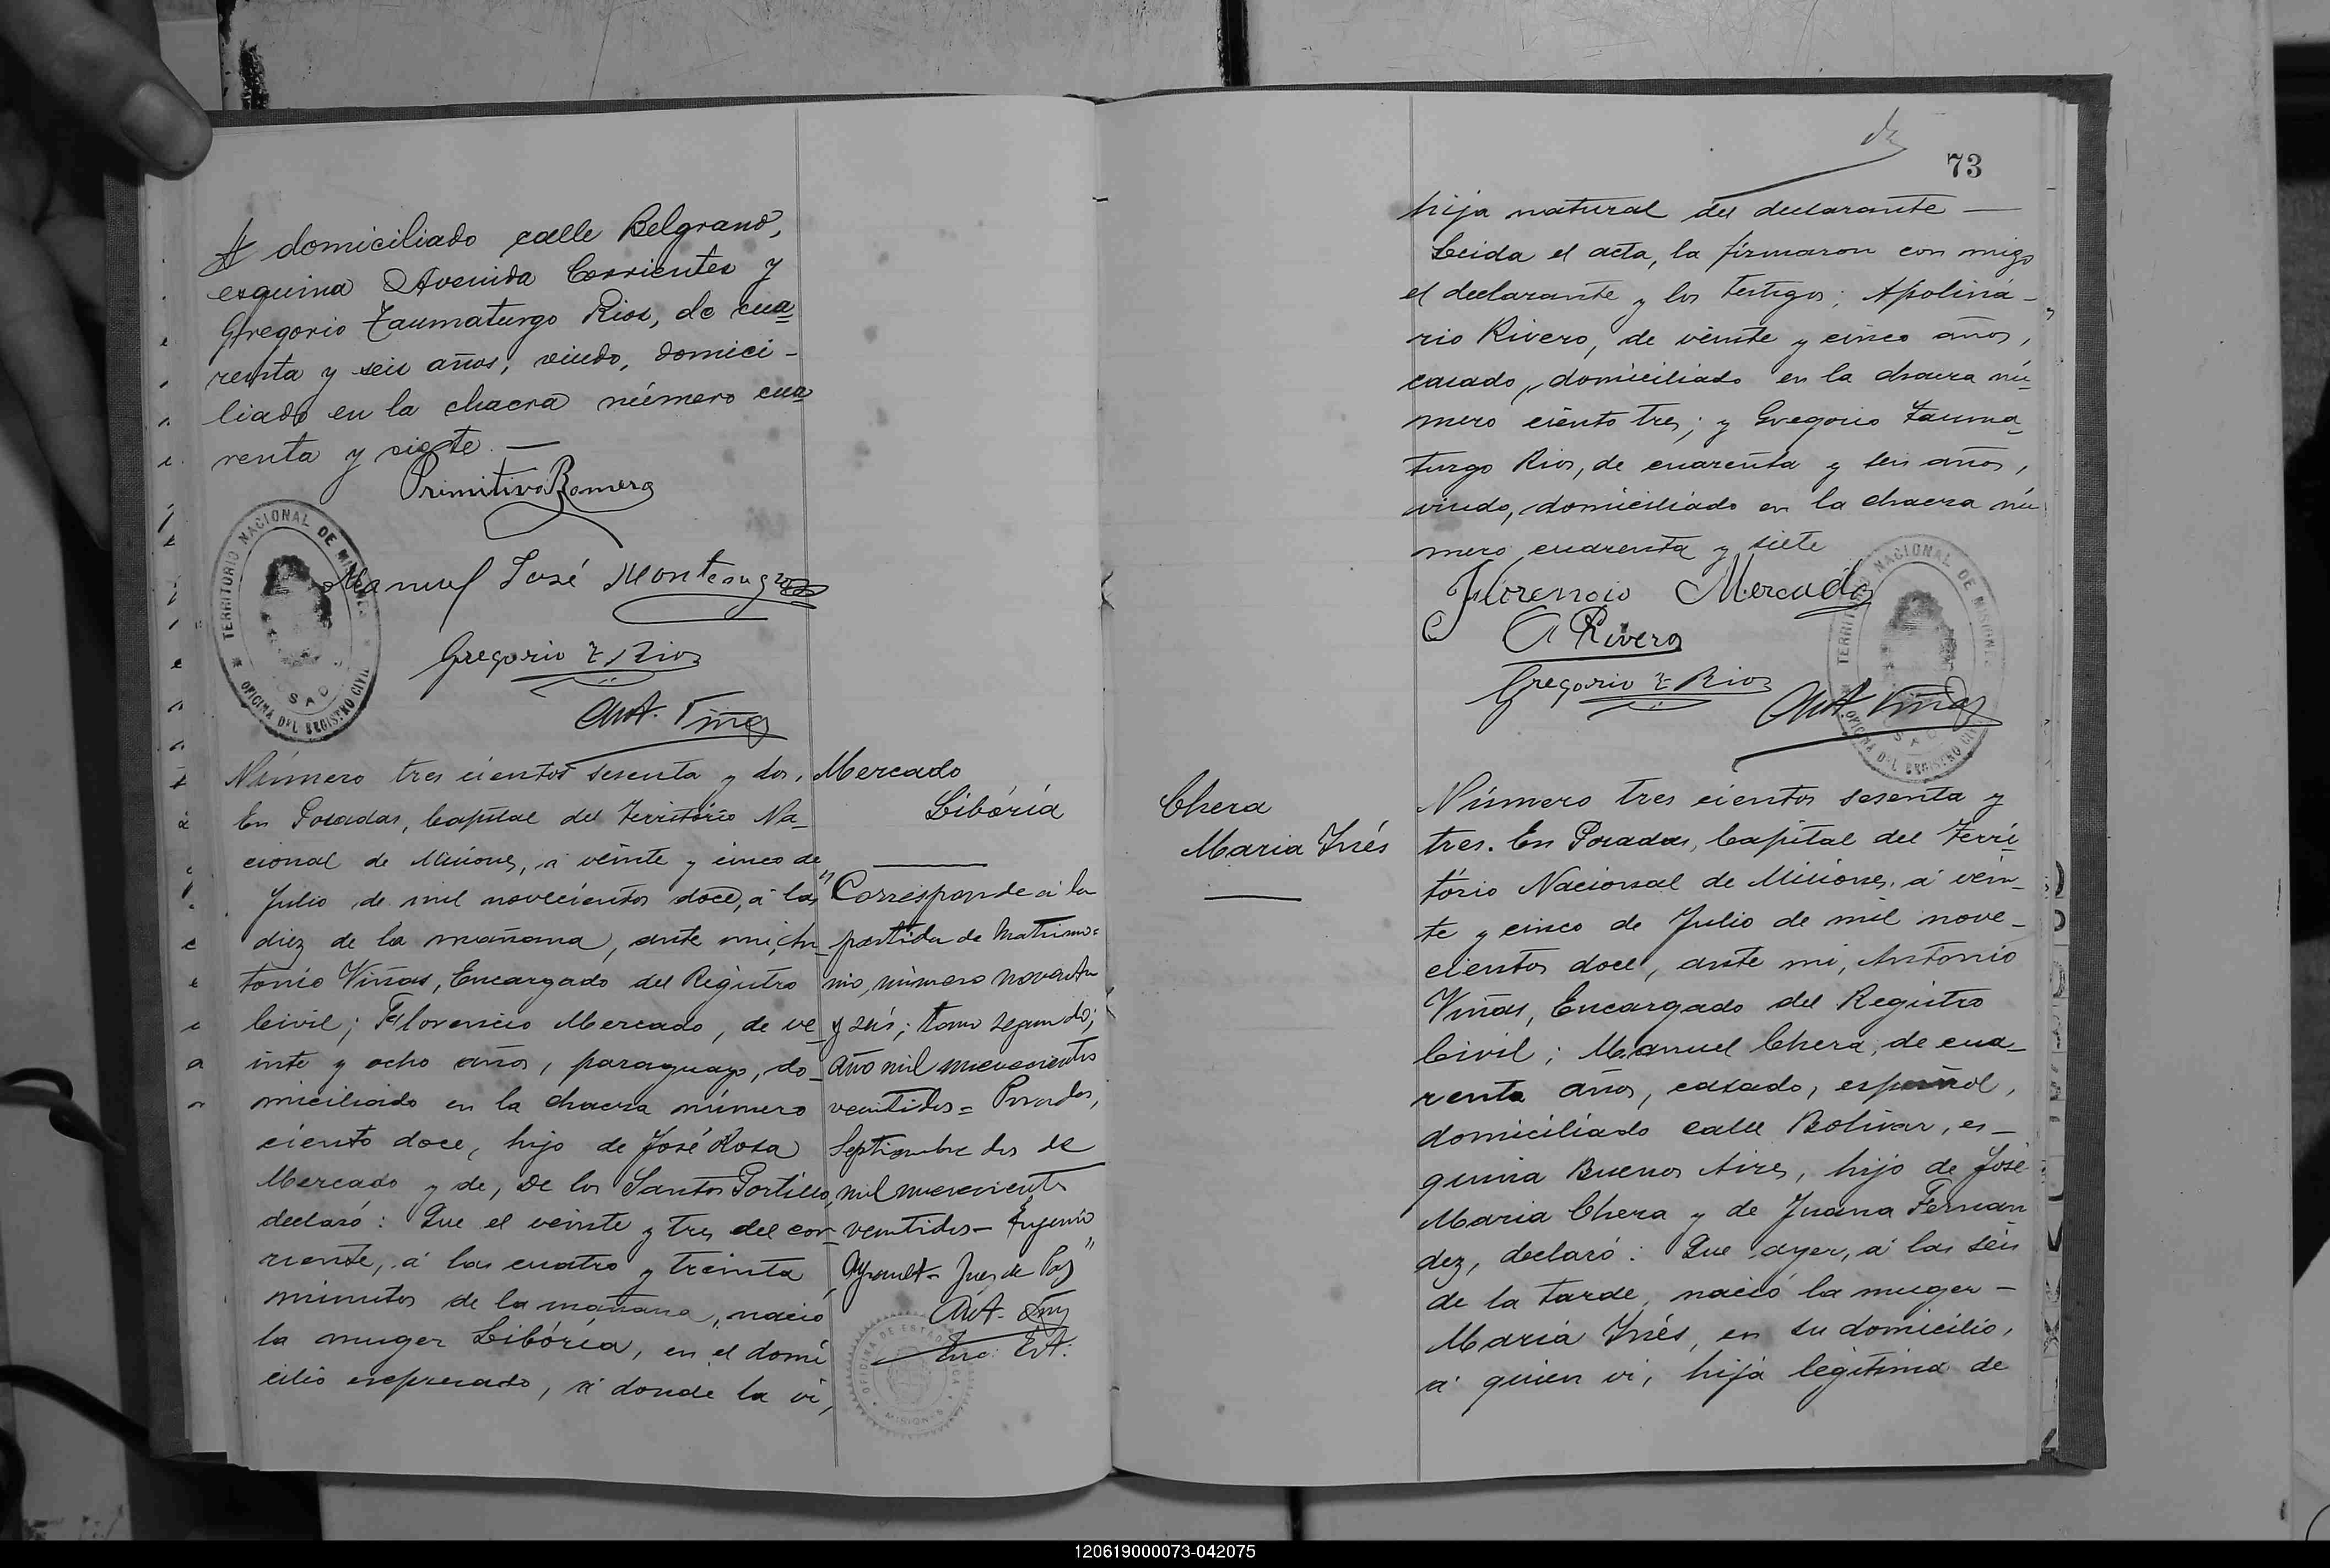 domiciliado calle Belgrano,
esquina Avenida Corrientes y
Gregorio Taumaturgo Rios, de cua
renta y seis años, viudo, domici-
liado en la chacra número cua
renta y siete. —
Primitivo Romero
Manuel José
Gregorio T Rios
Ant. Viñas
TERRITORIO NACIONAL DE MISIONES
OFICINA DEL REGISTRO CIVIL
Número tres cientos sesenta y dos,
En Posadas, Capital del Territorio Na-
cional de Misiones, á veinte y cinco de
Julio de mil novecientos doce, á las
diez de la mañana, ante mi, An-
tonio Viñas, Encargado del Registro
Civil; Florencio Mercado, de ve-
inte y ocho años, paraguayo, do-
miciliado en la chacra número
ciento doce, hijo de José Rosa
Mercado y de, De los Santos Portillo,
declaró: Que el veinte y tres del cor-
riente, á las cuatro y treinta
minutos de la mañana, nació
la muger Libória, en el domi
cilio expresado, á donde la vi,
Mercado
Libória
"Corresponde á la
partida de Matrimo=
nio, número noventa
y seis; tomo segundo;
año mil nuevecientos
veintidos = Posadas,
Septiembre dos de
mil nuevecientos
veintidos — Eugenio
Ayrault = Juez de Paz"
Ant.
OFICINA DE ESTADISTICA
MISIONES
73
hija natural del declarante —
Leida el acta, la firmaron con migo
el declarante y los testigos; Apoliná-
rio Rivero, de veinte y cinco años,
casado, domiciliado en la chacra nú-
mero ciento tres; y Gregorio Tauma-
turgo Rios, de cuarenta y seis años,
viudo, domiciliado en la chacra nú
mero cuarenta y siete
Florencio Mercado
A Rivero
Gregorio T Rios
Ant. Viñas
TERRITORIO NACIONAL DE MISIONES
OFICINA DEL REGISTRO CIVIL
Chera
Maria Inés
Número tres cientos sesenta y
tres. En Posadas, Capital del Terri-
tório Nacional de Misiones, á vein-
te y cinco de Julio de mil nove-
cientos doce, ante mi, Antonio
Viñas, Encargado del Registro
Civil; Manuel Chera, de cua-
renta años, casado, español,
domiciliado calle Bolivar, es-
quina Buenos Aires, hijo de José
Maria Chera y de Juana Fernan
dez, declaró: Que ayer, á las seis
de la tarde, nació la muger —
Maria Inés, en su domicilio,
á quien vi, hija legítima de
120619000073-042075